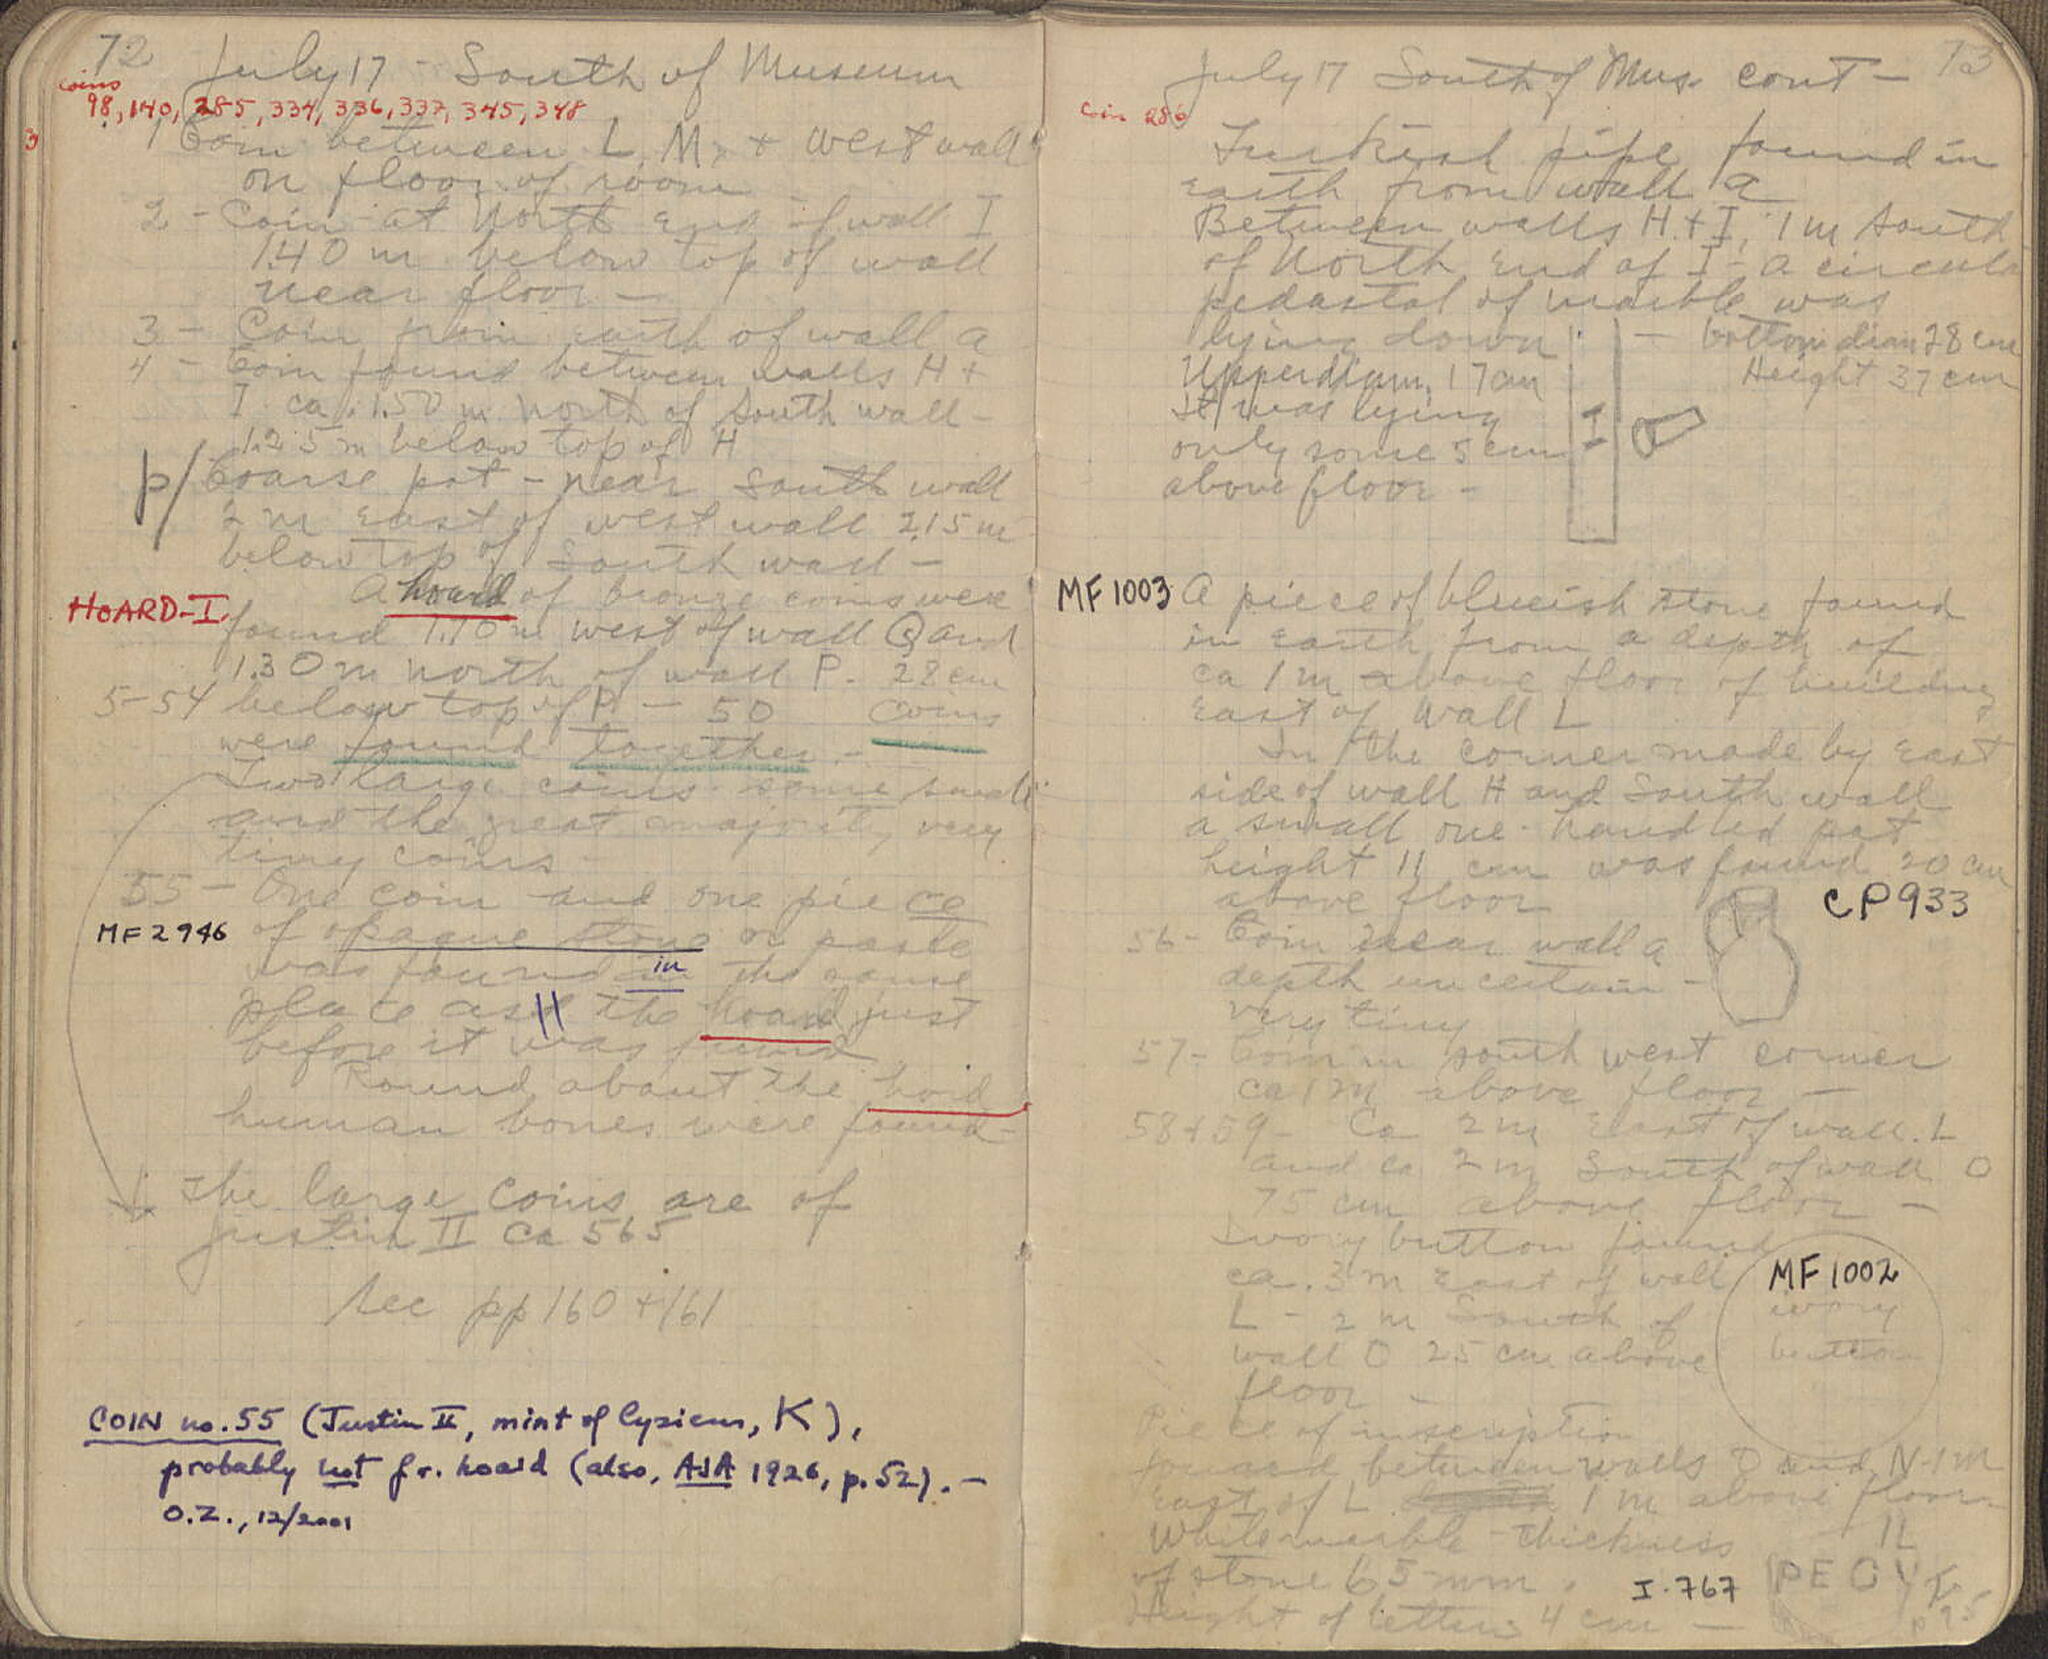 72 July 17 - South of Museum
coins
98, 140, 285, 334, 336, 337, 345, 348
3
1 Coin between L, M, + west wall
on floor of room
2 - Coin at North End of wall I
1.40 m below top of wall
near floor -
3 - Coin from earth of wall a
4 - Coin found between walls H +
I ca. 1.50 m north of South wall -
1.25 m below top of H
p/ Coarse pot - near South wall
2 m East of west wall 2.15 m
below top of South wall -
A hoard of bronze coins were
HOARD-I found 1.70 m west of wall Q and
1.30 m north of wall P. 28 cm
5-54 below top of P - 50 coins
were found together -
Two large coins some small
and the great majority very
tiny coins -
55 - One coin and one piece
MF 2946 of opaque stone or paste
was found in the same
place as the hoard just
before it was found
Round about the hord
human bones were found -
The large coins are of
Justin II ca 565
see pp 160 + 161
COIN no. 55 (Justin II, mint of Cyzicus, K),
probably not fr. hoard (also, AJA 1926, p. 52). -
O.Z., 12/2001
July 17 South of Mus. cont - 73
Coin 286
Turkish pipe found in
earth from wall a
Between walls H + I, 1 m South
of North End of I - a circula
pedastal of marble was
lying down - bottom diam 28 cm
Upper diam. 17 cm Height 37 cm
It was lying
only some 5 cm I
above floor -
MF 1003 A piece of blueish stone found
in earth from a depth of
ca 1 m above floor of building
East of Wall L
In the corner made by East
side of wall H and South wall
a small one-handled pot
height 11 cm was found 20 cm
above floor CP 933
56 - Coin near wall a
depth uncertain -
very tiny
57 - Coin in south west corner
ca 1 m above floor -
58 + 59 - Ca 2 m East of wall L
and ca 2 m South of wall O
75 cm above floor -
Ivory button found
ca. 3 m East of wall MF 1002
L - 2 m South of ivory
wall O 25 cm above button
floor -
Piece of inscription
found between walls O and N - 1 m
East of L 1 m above floor -
White marble - thickness
of stone 65 mm. I-767
Height of letters 4 cm -
IL
PECY
p 95